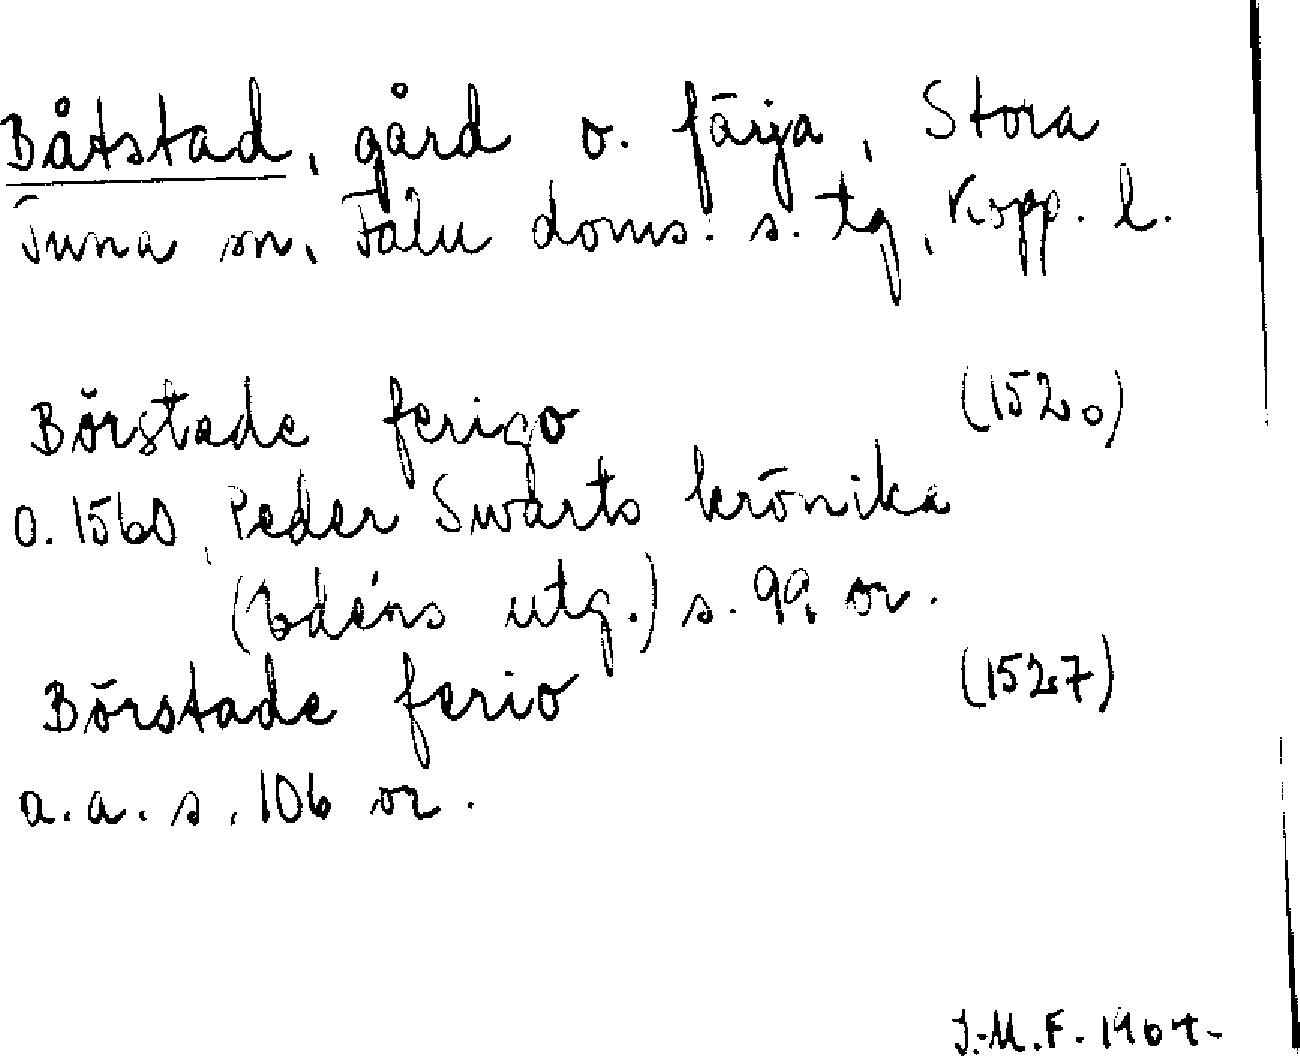 Båtstad, gård o. färja, Stora
Tuna sn, Falu doms. s. tg, Kopp. l.
Börstade ferigo (1520)
o. 1560, Peder Swarts krönika
(Edéns utg.) s. 99 or.
Börstade ferio (1527)
a. a. s. 106 or.
J.-M. F. 1964-